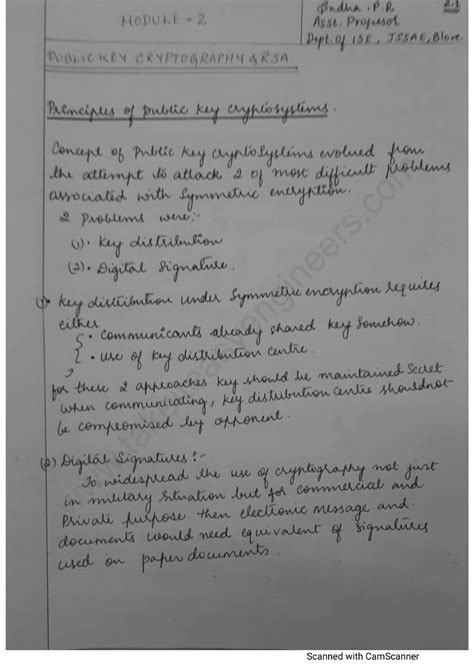 2.1
MODULE - 2
Indha . P. R
Asst. Professor
Dept. of ISE, JSSAE, Blore.
PUBLIC KEY CRYPTOGRAPHY & RSA
Principles of public key cryptosystems.
Concept of Public key cryptosystems evolved from
the attempt to attack 2 of most difficult problems
associated with symmetric encryption.
2 Problems were:-
(1). Key distribution
(2). Digital Signature.
(1). Key distribution under symmetric encryption requires
either
• Communicants already shared key somehow.
• use of key distribution centre.
for these 2 approaches key should be maintained secret
when communicating, key distribution centre should not
be compromised by opponent.
(2) Digital Signatures :-
To widespread the use of cryptography not just
in military situation but for commercial and
Private purpose. then electronic message and
documents would need equivalent of signatures
used on paper documents.
Scanned with CamScanner